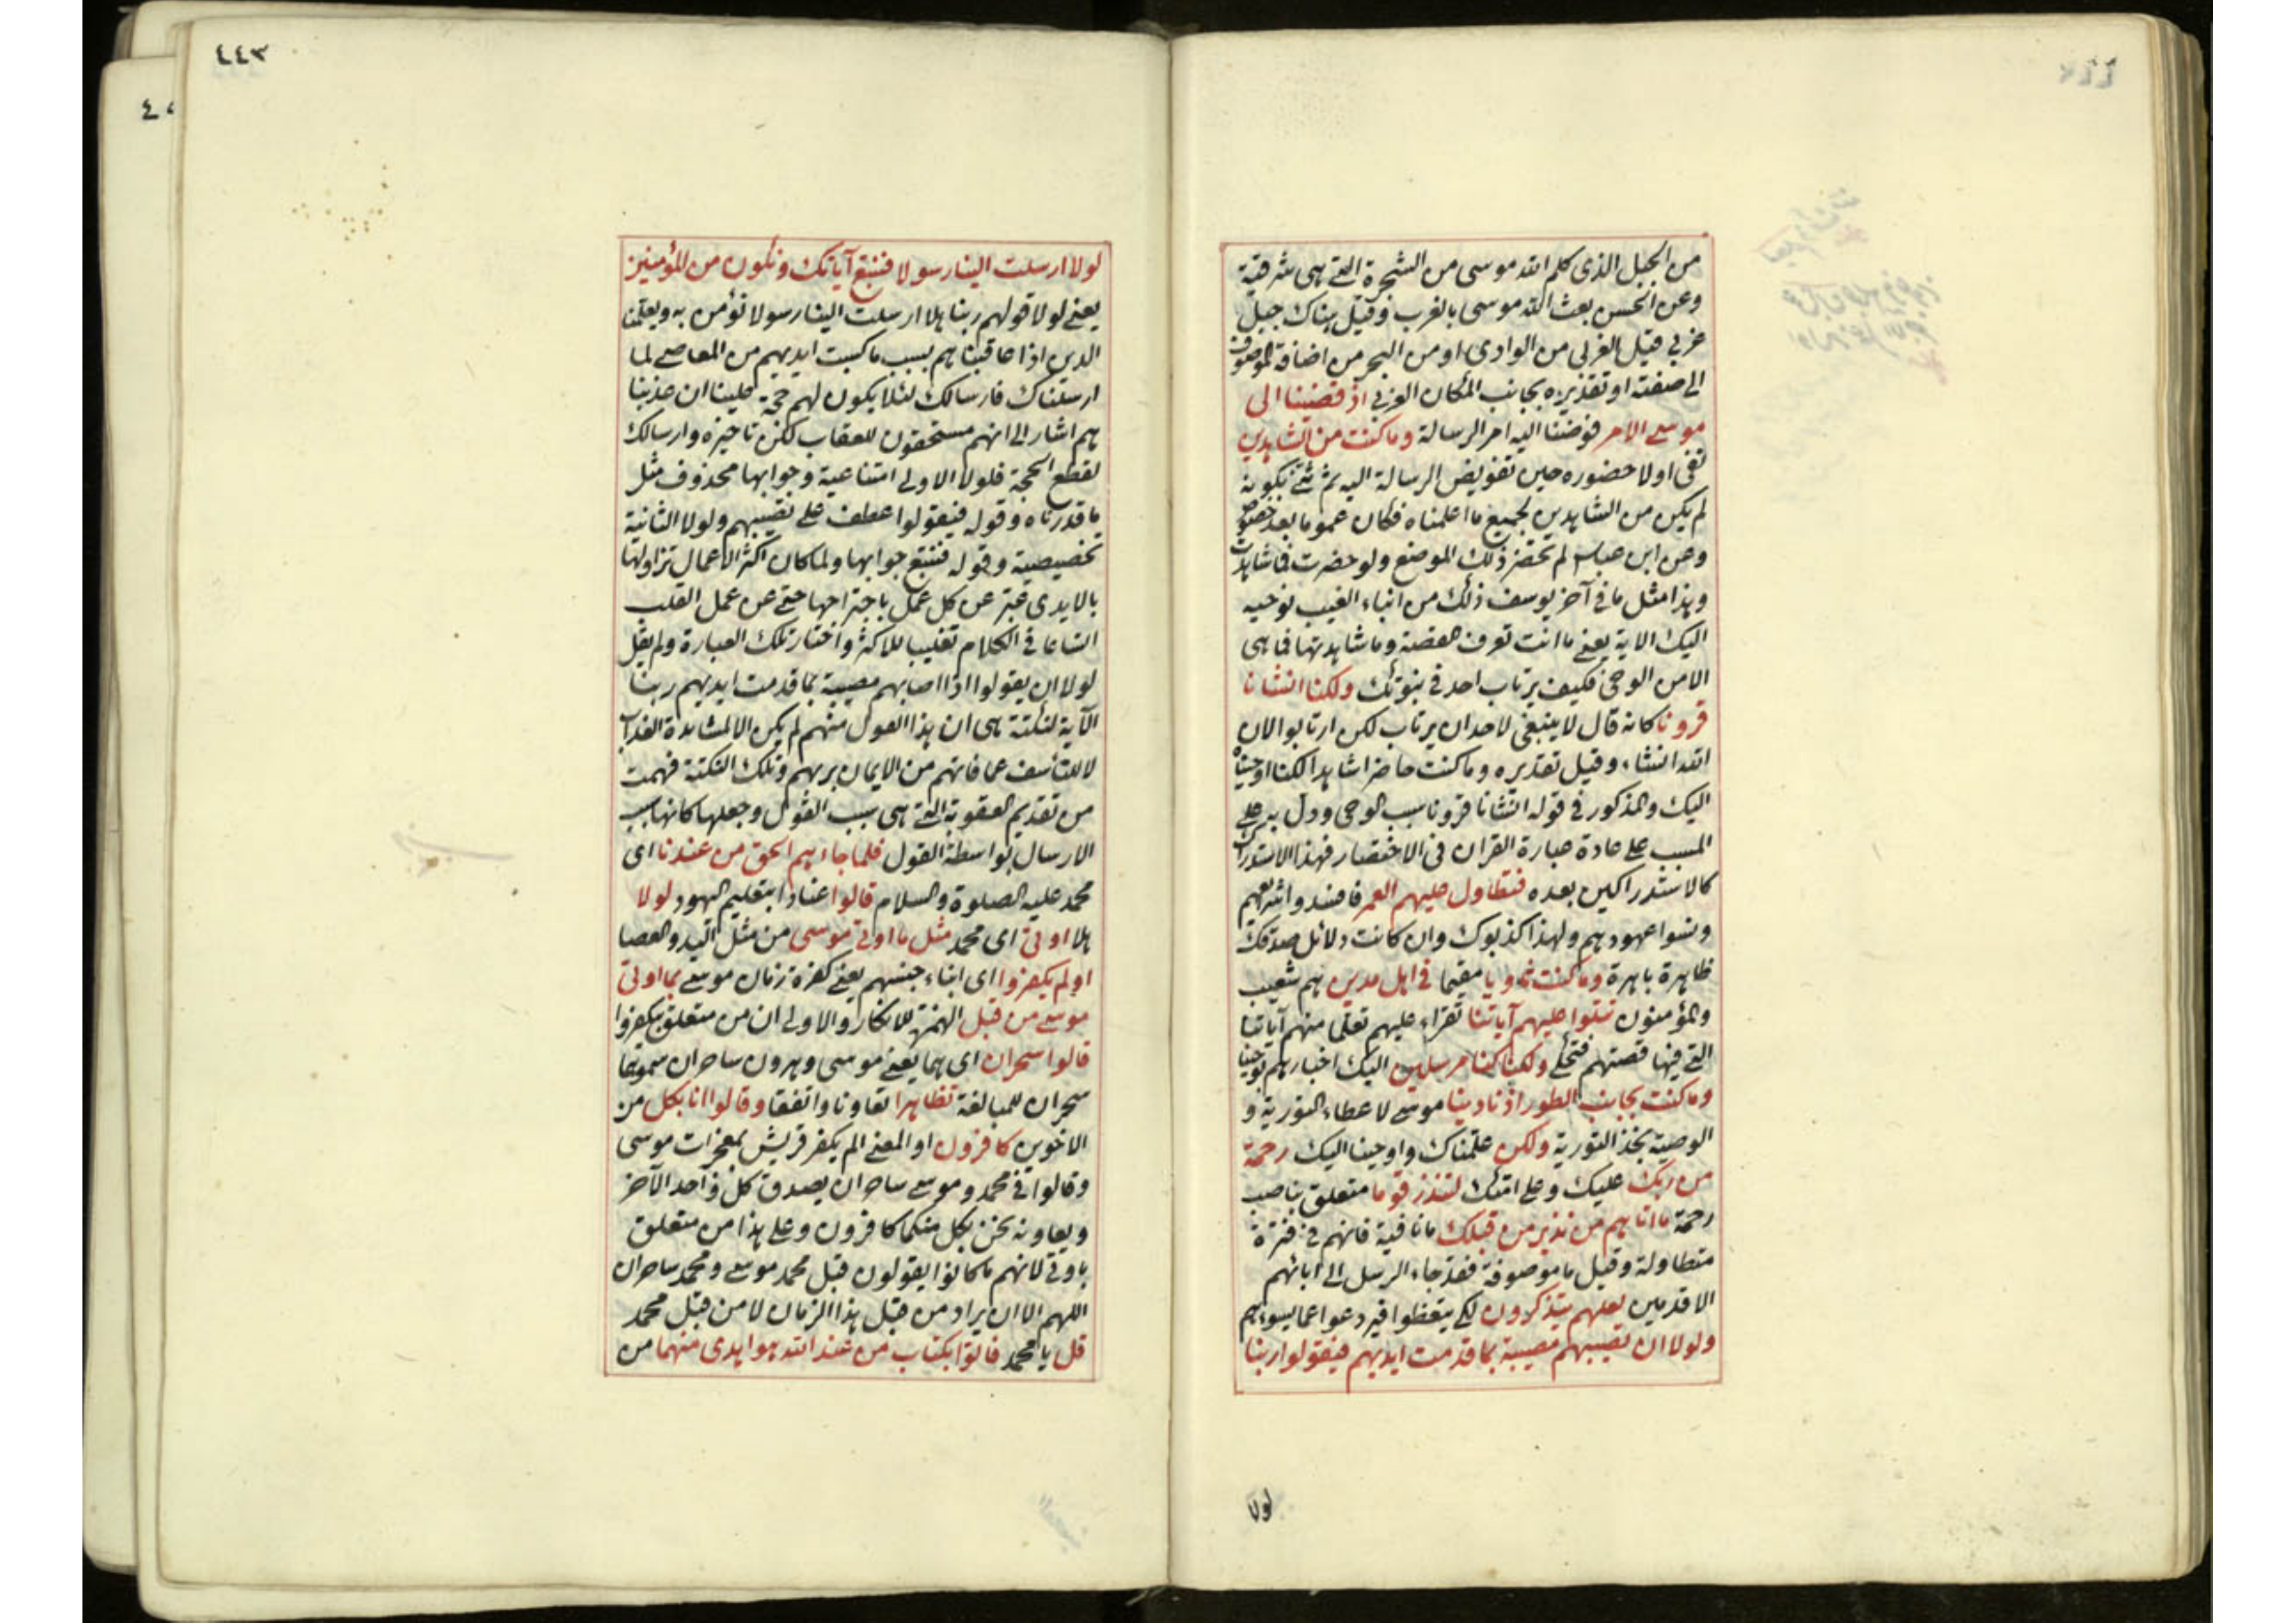 من الجبل الذى كلم الله موسى من الشجرة التے هى شرقية
وعن الحسن بعث الله موسى بالغرب وقيل هناك جبل
غربي قيل الغربى من الوادى او من البحر من اضافة الموصوف
الى صفته او تقديره بجانب المكان الغربي اذ قضينا الى
موسے الامر فوضنا اليه امر الرسالة وما كنت من الشاهدين
نفى اولا حضوره حين تفويض الرسالة اليه ثم ثنے بكونه
لم يكن من الشاهدين لجميع ما اعلمناه فكان عموما بعد خصوص
وعن ابن عباس لم تحضر ذلك الموضع ولو حضرت فما شاهدت
وهذا مثل ما فى آخر يوسف ذلك من انباء الغيب نوحيه
اليك الاية يعنے ما انت تعرف القصة وما شاهدتها فما هى
الا من الوحى فكيف يرتاب احد فى نبوتك ولكنا انشانا
قرونا كانه قال لا ينبغى لاحد ان يرتاب لكن ارتابوا لان
الله انشاء وقيل تقديره وما كنت حاضرا شاهدا لكنا اوحيناه
اليك والمذكور فى قوله انشانا قرونا سبب الوحى ودل به علے
المسبب علے عادة عبارة القران فى الاختصار فهذا الاستدراك
كالاستدراكين بعده فتطاول عليهم العمر فافسدوا شرايعهم
ونسوا عهودهم ولهذا كذبوك وان كانت دلائل صدقك
ظاهرة باهرة وما كنت ثاويا مقيما فى اهل مدين هم شعيب
والمؤمنون تتلوا عليهم آياتنا تقراء عليهم تعلما منهم آياتنا
التے فيها قصتهم فتحكے ولكنا كنا مرسلين اليك اخبارهم بوحينا
وما كنت بجانب الطور اذ نادينا موسے لاعطاء التورية و
الوصية بخذ التورية ولكن علمناك واوحينا اليك رحمة
من ربك عليك وعلے امتك لتنذر قوما متعلق بناصب
رحمة ما اتاهم من نذير من قبلك ما نافية فانهم فى فترة
متطاولة وقيل ما موصوفة فقد جاء الرسل الى ابائهم
الاقدمين لعلهم يتذكرون لكے يتعظوا فيردعوا عما يسوءهم
ولولا ان تصيبهم مصيبة بما قدمت ايديهم فيقولوا ربنا
لولا
٤٤٣
لولا ارسلت الينا رسولا فنتبع آياتك ونكون من المؤمنين
يعنے لولا قولهم ربنا هلا ارسلت الينا رسولا نؤمن به ويعلمنا
الدين اذا عاقبناهم بسبب ما كسبت ايديهم من المعاصے لما
ارسلناك فارسالك لئلا يكون لهم حجة علينا ان عذبنا
هم اشار الى انهم مستحقون للعقاب لكن تاخيره وارسالك
لقطع الحجة فلولا الاولى امتناعية وجوابها محذوف مثل
ما قدرناه وقوله فيقولوا عطف علے تصيبهم ولولا الثانية
تخصيصية وقوله فنتبع جوابها ولما كان اكثر الاعمال تزاولها
بالايدى عبر عن كل عمل باجتراحها حتے عن عمل القلب
اتساعا فى الكلام تغليبا للاكثر واختار تلك العبارة ولم يقل
لولا ان يقولوا اذا اصابهم مصيبة بما قدمت ايديهم ربنا
الآية لنكتة هى ان هذا القول منهم لم يكن الا لمشاهدة العذاب
لا للتأسف عما فاتهم من الايمان بربهم وتلك النكتة فهمت
من تقديم العقوبة التے هى سبب القول وجعلها كانها سبب
الارسال بواسطة القول فلما جاءهم الحق من عندنا اى
محمد عليه الصلوة والسلام قالوا عنادا بتعليم اليهود لولا
هلا اوتى اى محمد مثل ما اوتى موسى من مثل اليد والعصا
او لم يكفروا اى ابناء جنسهم يعنے كفرة زمان موسے بما اوتى
موسے من قبل الهمزة للانكار والاولى ان من متعلق بيكفروا
قالوا سحران اى هما يعنے موسى وهرون ساحران سموهما
سحران للمبالغة تظاهرا تعاونا واتفقا وقالوا انا بكل من
الاخوين كافرون او المعنے الم يكفر قريش بمعجزات موسى
وقالوا فى محمد وموسے ساحران يصدق كل واحد الآخر
ويعاونه نحن بكل منكما كافرون وعلے هذا من متعلق
باوتى لانهم ما كانوا يقولون قبل محمد موسے ومحمد ساحران
اللهم الا ان يراد من قبل هذا الزمان لا من قبل محمد
قل يا محمد فاتوا بكتاب من عند الله هو اهدى منهما من